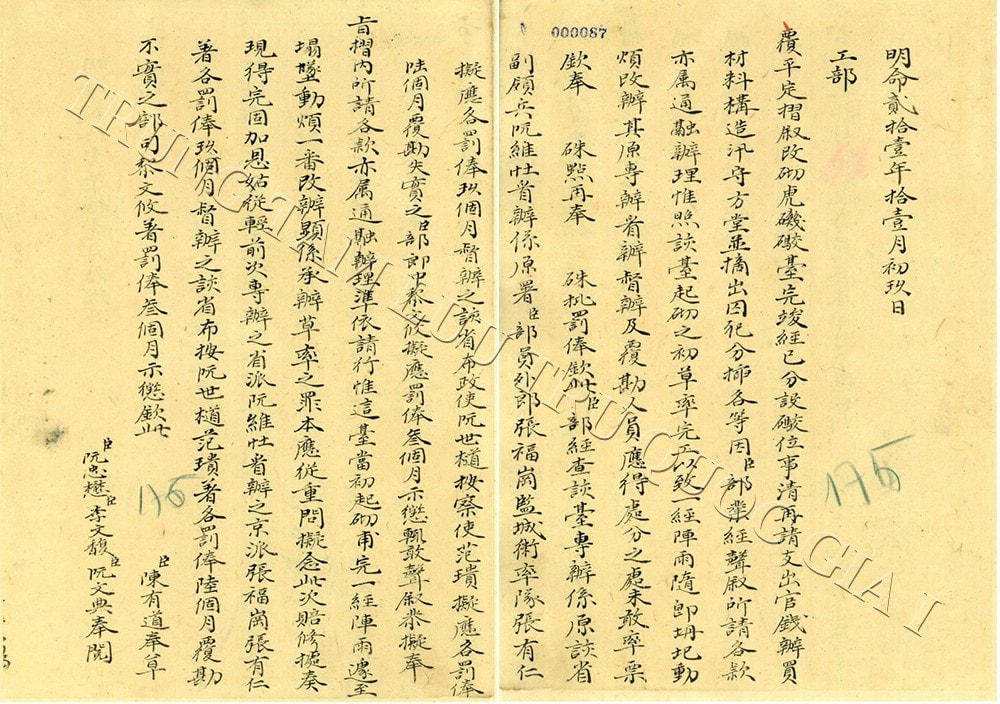 000087
明命貳拾壹年拾壹月初玖日
工部
覆平定摺敘改砌虎磯礮臺完竣經已分設礮位事清再請支出官錢辦買
材料構造汛守方堂並摘出因犯分揷各等因臣部業經聲敘所請各款
亦属通融辦理惟照該臺起砌之初草率完工以致一經陣雨隨即坍圮動
煩改辦其原專辦省辦督辦及覆勘人員應得處分之處未敢率票
欽奉 硃點再奉 硃批罰俸欽此臣部經查該臺專辦係原該省
副領兵阮維壯省辦係原署臣部員外郎張福崗監城衛率隊張有仁
擬應各罰俸玖個月督辦之該省布政使阮世樀按察使范璝擬應各罰俸
陸個月覆勘失實之臣部郎中黎文攸擬應罰俸叁個月示懲輒敢聲敘恭擬奉
旨摺內所請各款亦属通融辦理準依請行惟這臺當初起砌甫完一經陣雨遽至
塌墜動煩一番改辦顕係承辦草率之罪本應從重問擬念此次賠修據奏
現得完固加恩姑從輕前次專辦之省派阮維壯省辦之京派張福崗張有仁
著各罰俸玖個月督辦之該省布按阮世樀范璝著各罰俸陸個月覆勘
不實之部司黎文攸著罰俸叁個月示懲欽此
臣陳有道奉草
臣阮忠懋臣李文馥臣阮文典奉閱
175
175
TRUNG TÂM LƯU TRỮ QUỐC GIA I